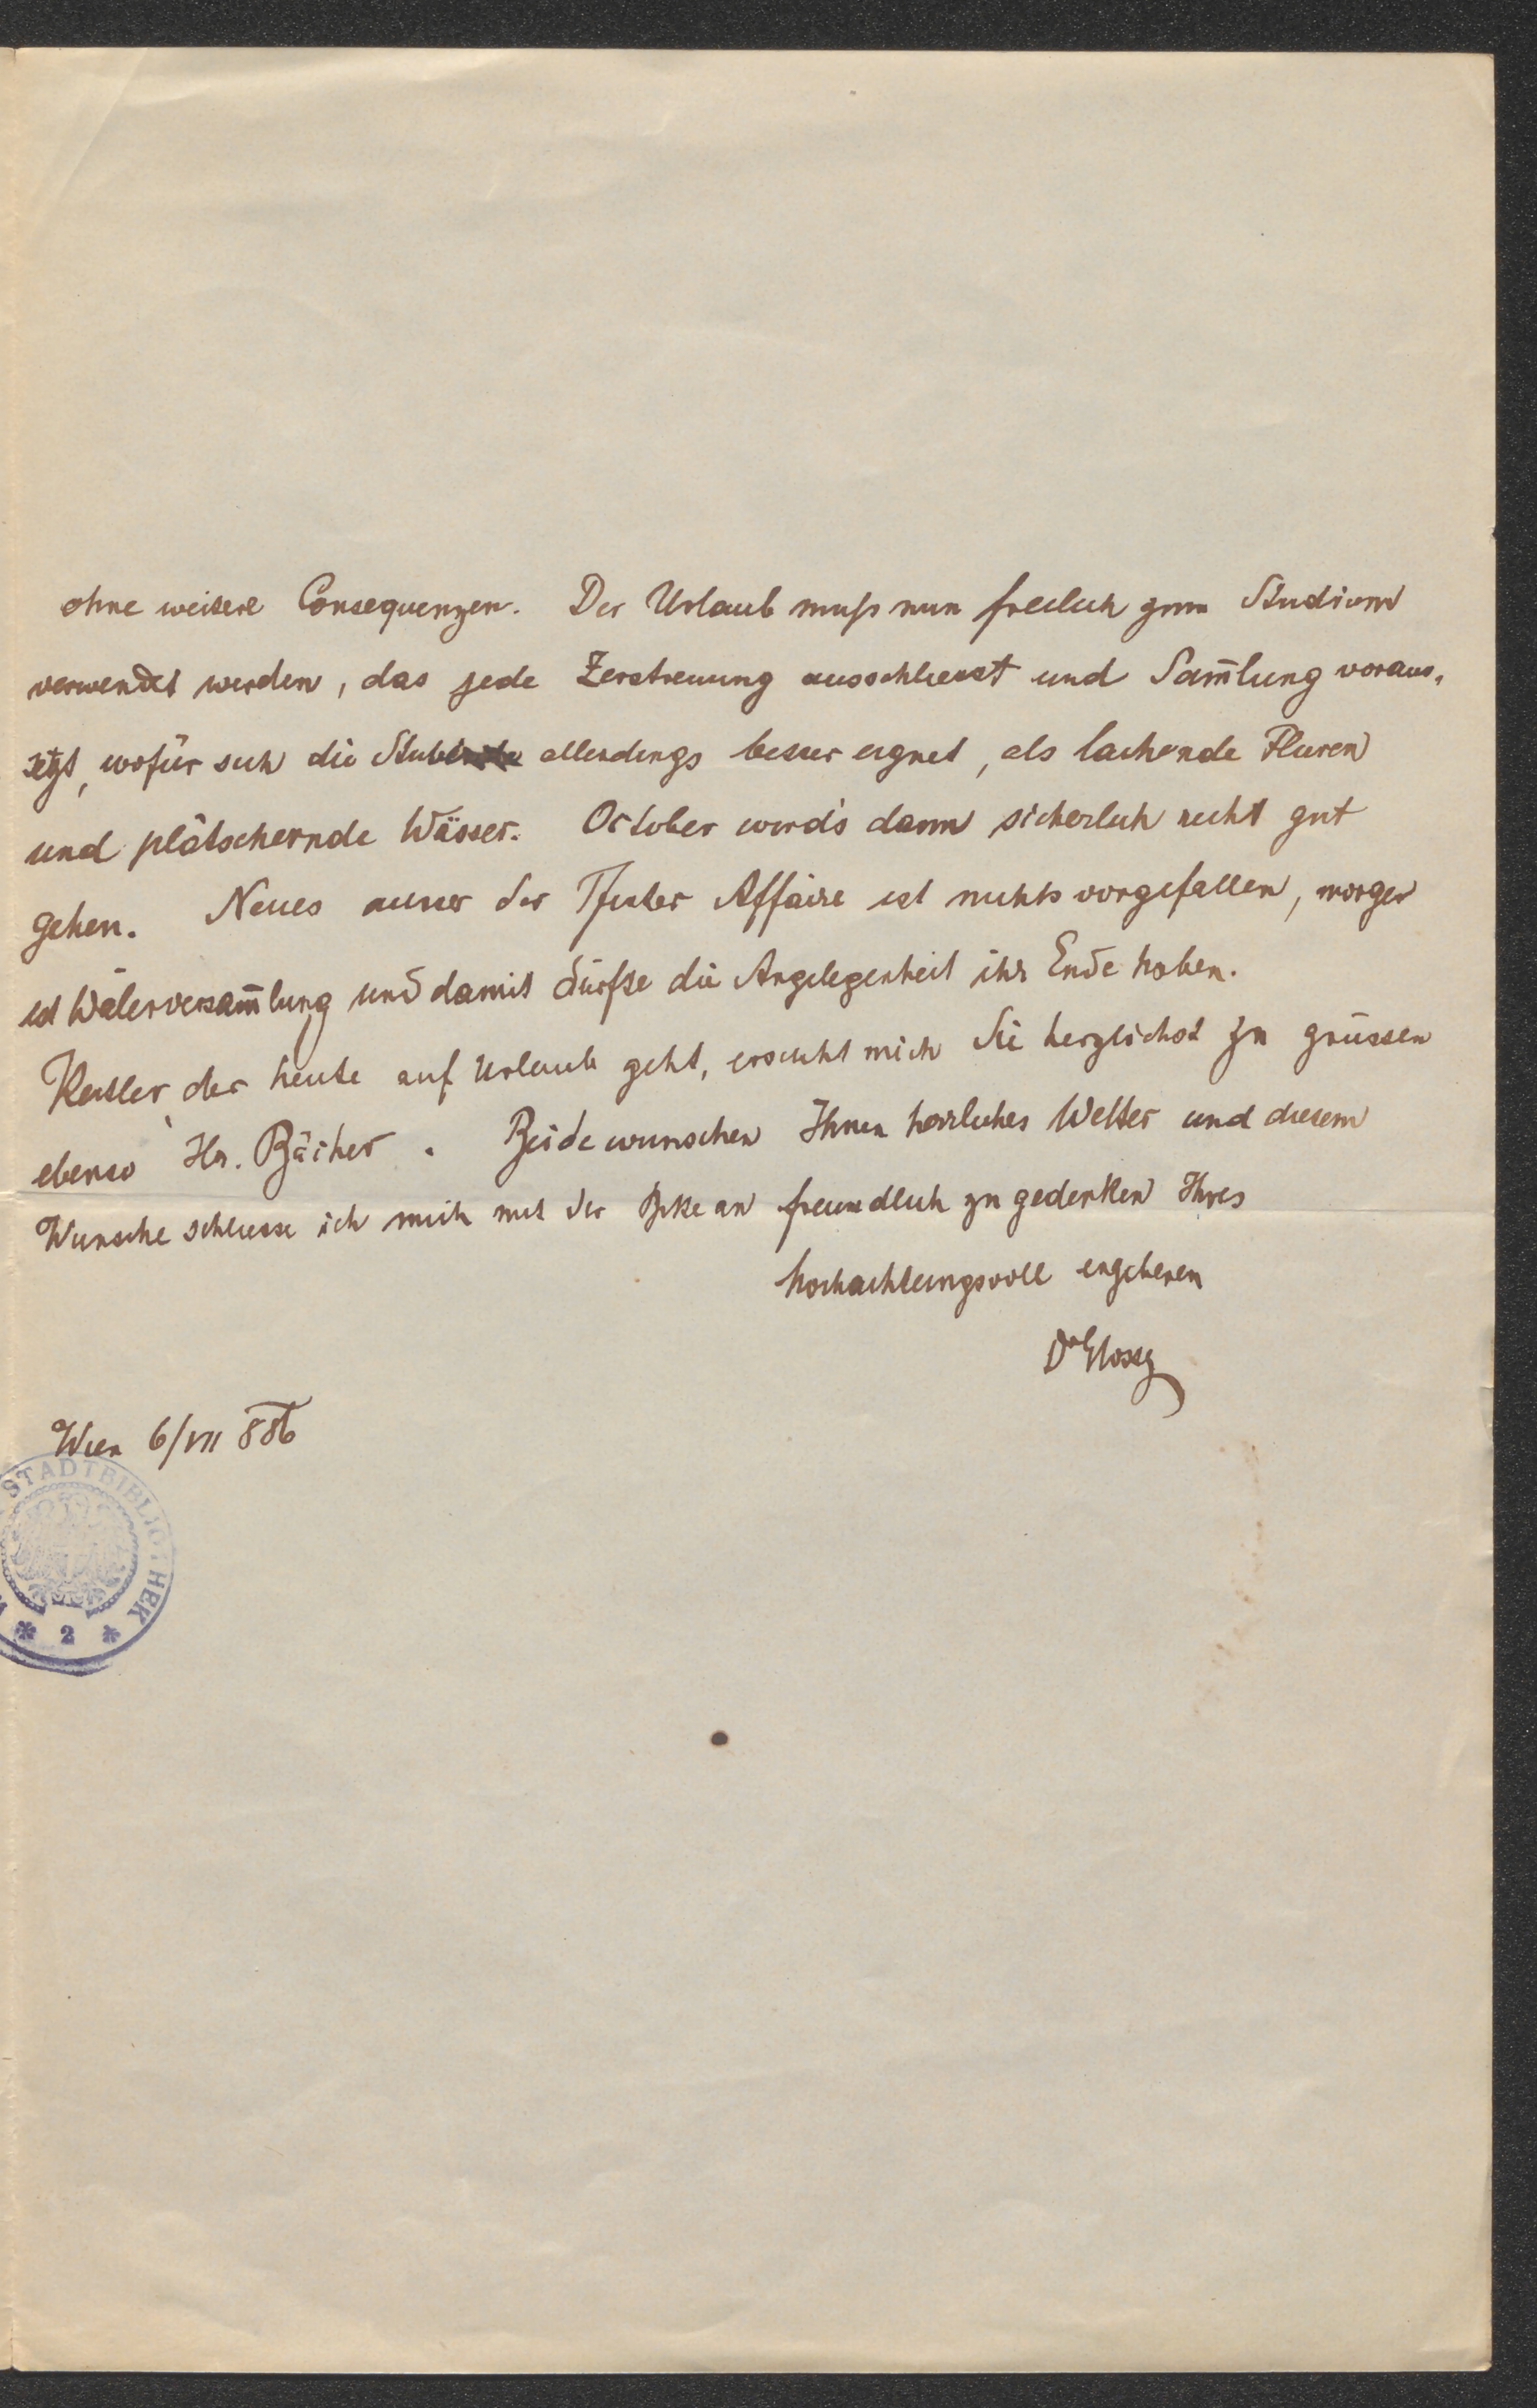 ohne weitere Consequenzen. Der Urlaub muß nun freilich zum Studium
verwendet werden, das jede Zerstreuung ausschliesst und Sam̅lung voraus-
setzt, wofür sich die Stube allerdings besser eignet, als lachende Fluren
und plätschernde Wässer. October wird's dann sicherlich recht gut
gehen. Neues ausser der Affaire ist nichts vorgefallen, morgen
ist Wälerversam̅lung und damit dürfte die Angelegenheit ihr Ende haben.
der heute auf Urlaub geht, ersucht mich Sie herzlichst zu grüssen
ebenso Hr. Bächer. Beide wunschen Ihnen herrliches Wetter und diesem
Wunsche schliesse ich mich mit der Bitte an freundlich zu gedenken Ihres
hochachtungsvoll ergebenen
Dr Glossy
Wien 6/VII 886
STADTBIBLIOTHEK
* 2 *